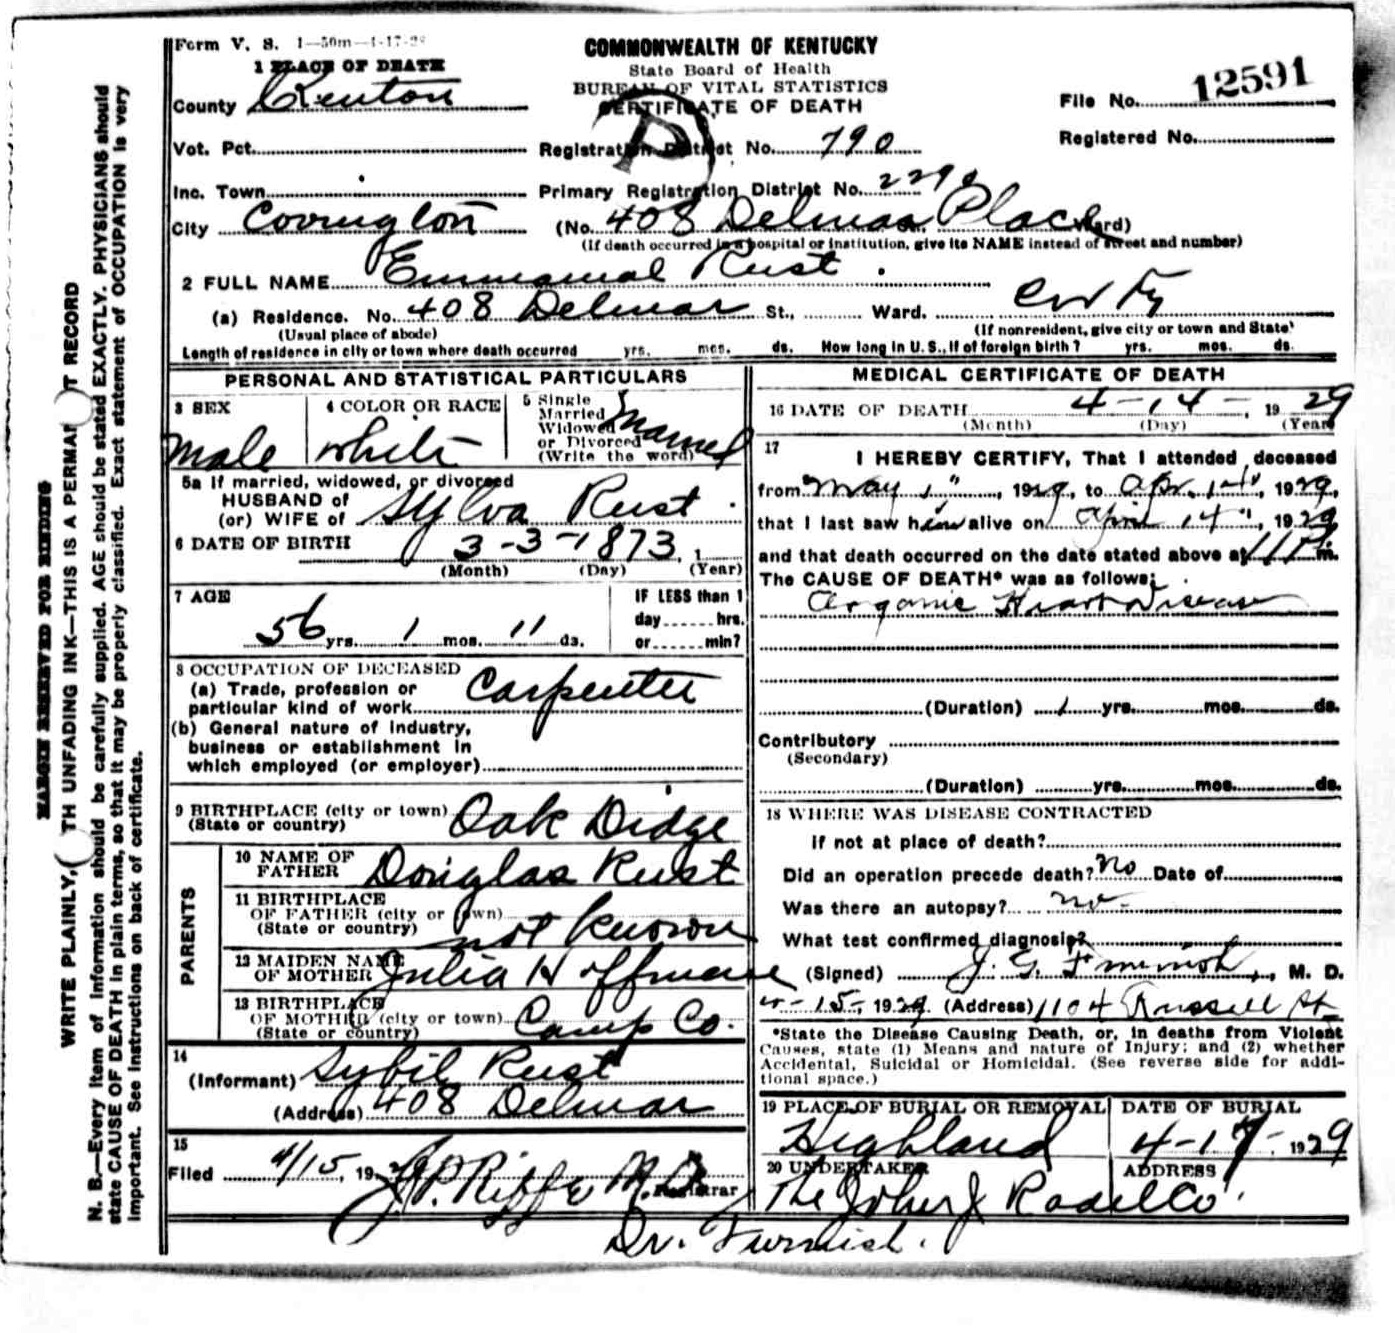 Form V. S. 1—50m—4-17-28
COMMONWEALTH OF KENTUCKY
State Board of Health
BUREAU OF VITAL STATISTICS
CERTIFICATE OF DEATH
File No. 12591
Registered No.
1 PLACE OF DEATH
County Kenton
Vot. Pct.
Registration District No. 790
Inc. Town
Primary Registration District No.
City Covington (No. 408 Delmar Place Ward)
(If death occurred in a hospital or institution, give its NAME instead of street and number)
2 FULL NAME Emmanual Rust
(a) Residence. No. 408 Delmar St., Ward. Cov Ky
(Usual place of abode) (If nonresident, give city or town and State)
Length of residence in city or town where death occurred yrs. mos. ds. How long in U. S., if of foreign birth? yrs. mos. ds.
PERSONAL AND STATISTICAL PARTICULARS
3 SEX
male
4 COLOR OR RACE
white
5 Single
Married
Widowed
or Divorced
(Write the word)
Married
5a If married, widowed, or divorced
HUSBAND of
(or) WIFE of Sylva Rust
6 DATE OF BIRTH 3-3-1873, 1
(Month) (Day) (Year)
7 AGE
56 yrs. 1 mos. 11 ds.
IF LESS than 1
day......hrs.
or......min?
8 OCCUPATION OF DECEASED
(a) Trade, profession or
particular kind of work Carpenter
(b) General nature of industry,
business or establishment in
which employed (or employer)
9 BIRTHPLACE (city or town) Oak Didge
(State or country)
PARENTS
10 NAME OF
FATHER Douglas Rust
11 BIRTHPLACE
OF FATHER (city or town)
(State or country) not known
12 MAIDEN NAME
OF MOTHER Julia Hoffman
13 BIRTHPLACE
OF MOTHER (city or town) Camp Co.
(State or country)
14
(Informant) Sybil Rust
(Address) 408 Delmar
15
Filed 4/15, 1929 J.P. Riffe M.D. Registrar
MEDICAL CERTIFICATE OF DEATH
16 DATE OF DEATH 4-14-, 1929
(Month) (Day) (Year)
17
I HEREBY CERTIFY, That I attended deceased
from May 1", 19, to Apr. 14, 1929,
that I last saw him alive on April 14", 1929
and that death occurred on the date stated above at 11 P m.
The CAUSE OF DEATH* was as follows:
Organic Heart Disease
(Duration) 1 yrs. mos. ds.
Contributory
(Secondary)
(Duration) yrs. mos. ds.
18 WHERE WAS DISEASE CONTRACTED
if not at place of death?
Did an operation precede death? no Date of
Was there an autopsy? no-
What test confirmed diagnosis?
(Signed) J. G. Furnish, M. D.
4-15-, 1929 (Address) 1104 Russell St.
*State the Disease Causing Death, or, in deaths from Violent
Causes, state (1) Means and nature of Injury; and (2) whether
Accidental, Suicidal or Homicidal. (See reverse side for addi-
tional space.)
19 PLACE OF BURIAL OR REMOVAL
Highland
DATE OF BURIAL
4-17-1929
20 UNDERTAKER
The John J Radel Co.
ADDRESS
Dr. Furnish.
MARGIN RESERVED FOR BINDING
WRITE PLAINLY, WITH UNFADING INK—THIS IS A PERMANENT RECORD
N. B.—Every item of information should be carefully supplied. AGE should be stated EXACTLY. PHYSICIANS should
state CAUSE OF DEATH in plain terms, so that it may be properly classified. Exact statement of OCCUPATION is very
important. See instructions on back of certificate.